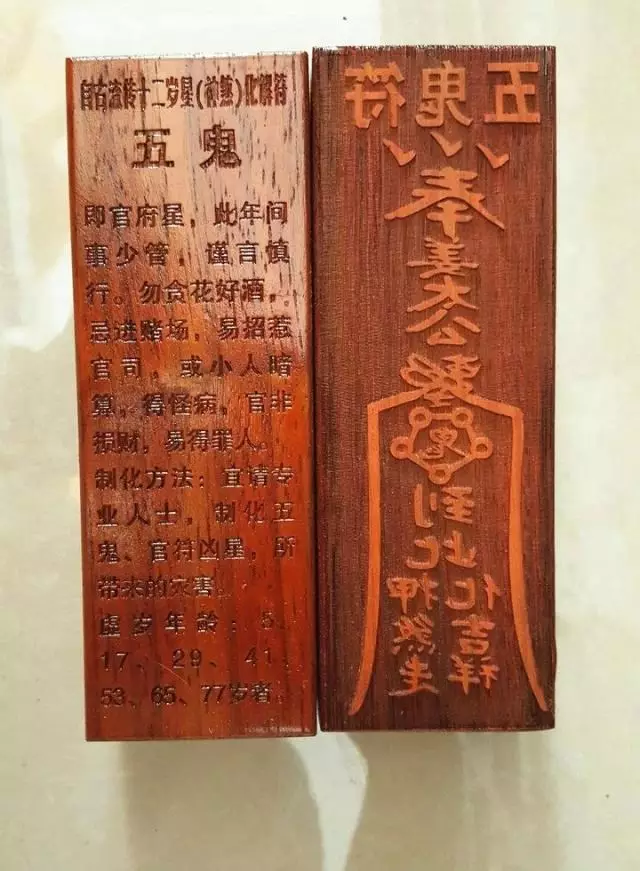 自古流传十二岁星(煞)化解符
五鬼
即官府星，此年间
事少管，谨言慎
行。勿贪花好酒，
忌进赌场，易招惹
官司，或小人暗
算，得怪病，官非
损财，易得罪人。
制化方法：宜请专
业人士，制化五
鬼、官符凶星，所
带来的灾害。
虚岁年龄：5、
17、29、41、
53、65、77岁者。
五鬼符
奉
姜太公
鬼
到此
押煞走
化吉祥